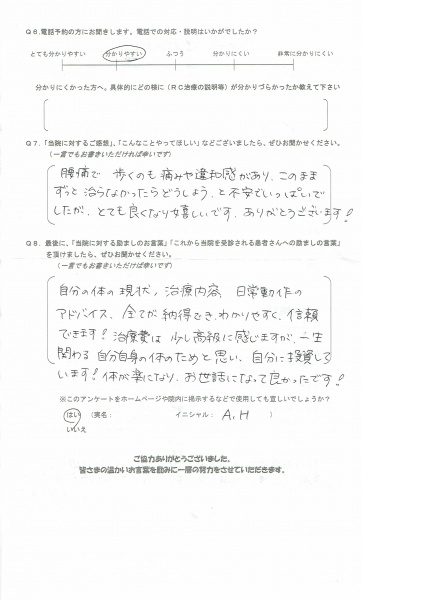 Q6.電話予約の方にお聞きします。電話での対応・説明はいかがでしたか？
とても分かりやすい 分かりやすい ふつう 分かりにくい 非常に分かりにくい
分かりにくかった方へ。具体的にどの様に（RC治療の説明等）が分かりづらかったか教えて下さい
Q7.「当院に対するご感想」、「こんなことやってほしい」などございましたら、ぜひお聞かせください。
（一言でもお書きいただければ幸いです）
腰痛で 歩くのも痛みや違和感があり、このまま
ずっと治らなかったらどうしよう、と不安でいっぱいで
したが、とても良くなり嬉しいです。ありがとうございます！
Q8.最後に、「当院に対する励ましのお言葉」「これから当院を受診される患者さんへの励ましの言葉」
を頂けましたら、ぜひお聞かせください。
（一言でもお書きいただけば幸いです）
自分の体の現状、治療内容、日常動作の
アドバイス、全てが納得でき、わかりやすく、信頼
できます！治療費は少し高級に感じますが、一生
関わる自分自身の体のためと思い、自分に投資して
います！体が楽になり、お世話になって良かったです！
※このアンケートをホームページや院内に掲示するなどで使用しても宜しいでしょうか？
はい （実名： イニシャル： A.H ）
いいえ
ご協力ありがとうございました。
皆さまの温かいお言葉を励みに一層の努力をさせていただきます。